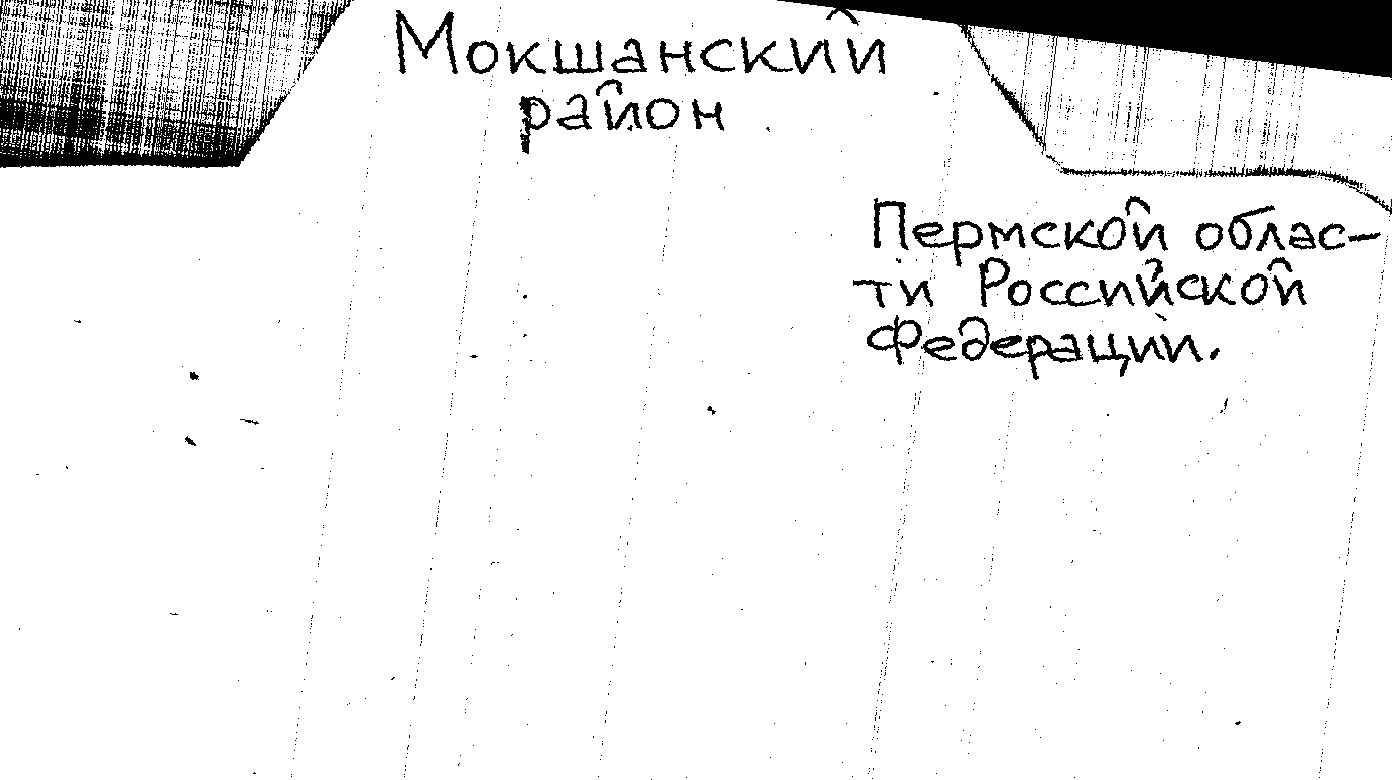 Мокшанский
район
Пермской облас-
ти Российской
Федерации.